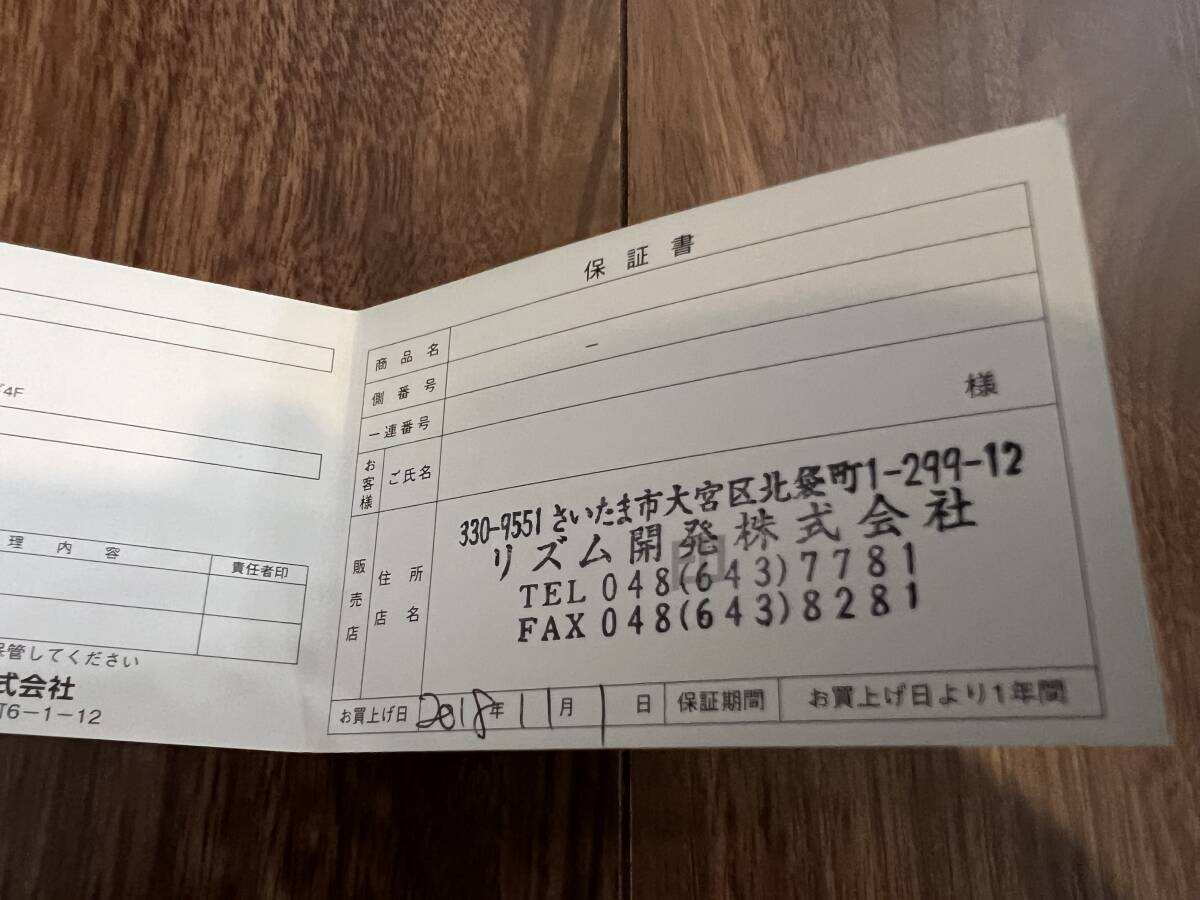 4F
理内容
責任者印
保管してください
式会社
T6-1-12
保証書
商品名
側番号
－
一連番号
お客様
ご氏名
様
販売店
住所
店名
330-9551 さいたま市大宮区北袋町1-299-12
リズム開発株式会社
TEL 048(643)7781
FAX 048(643)8281
お買上げ日 2018年 11月 1日
保証期間
お買上げ日より1年間